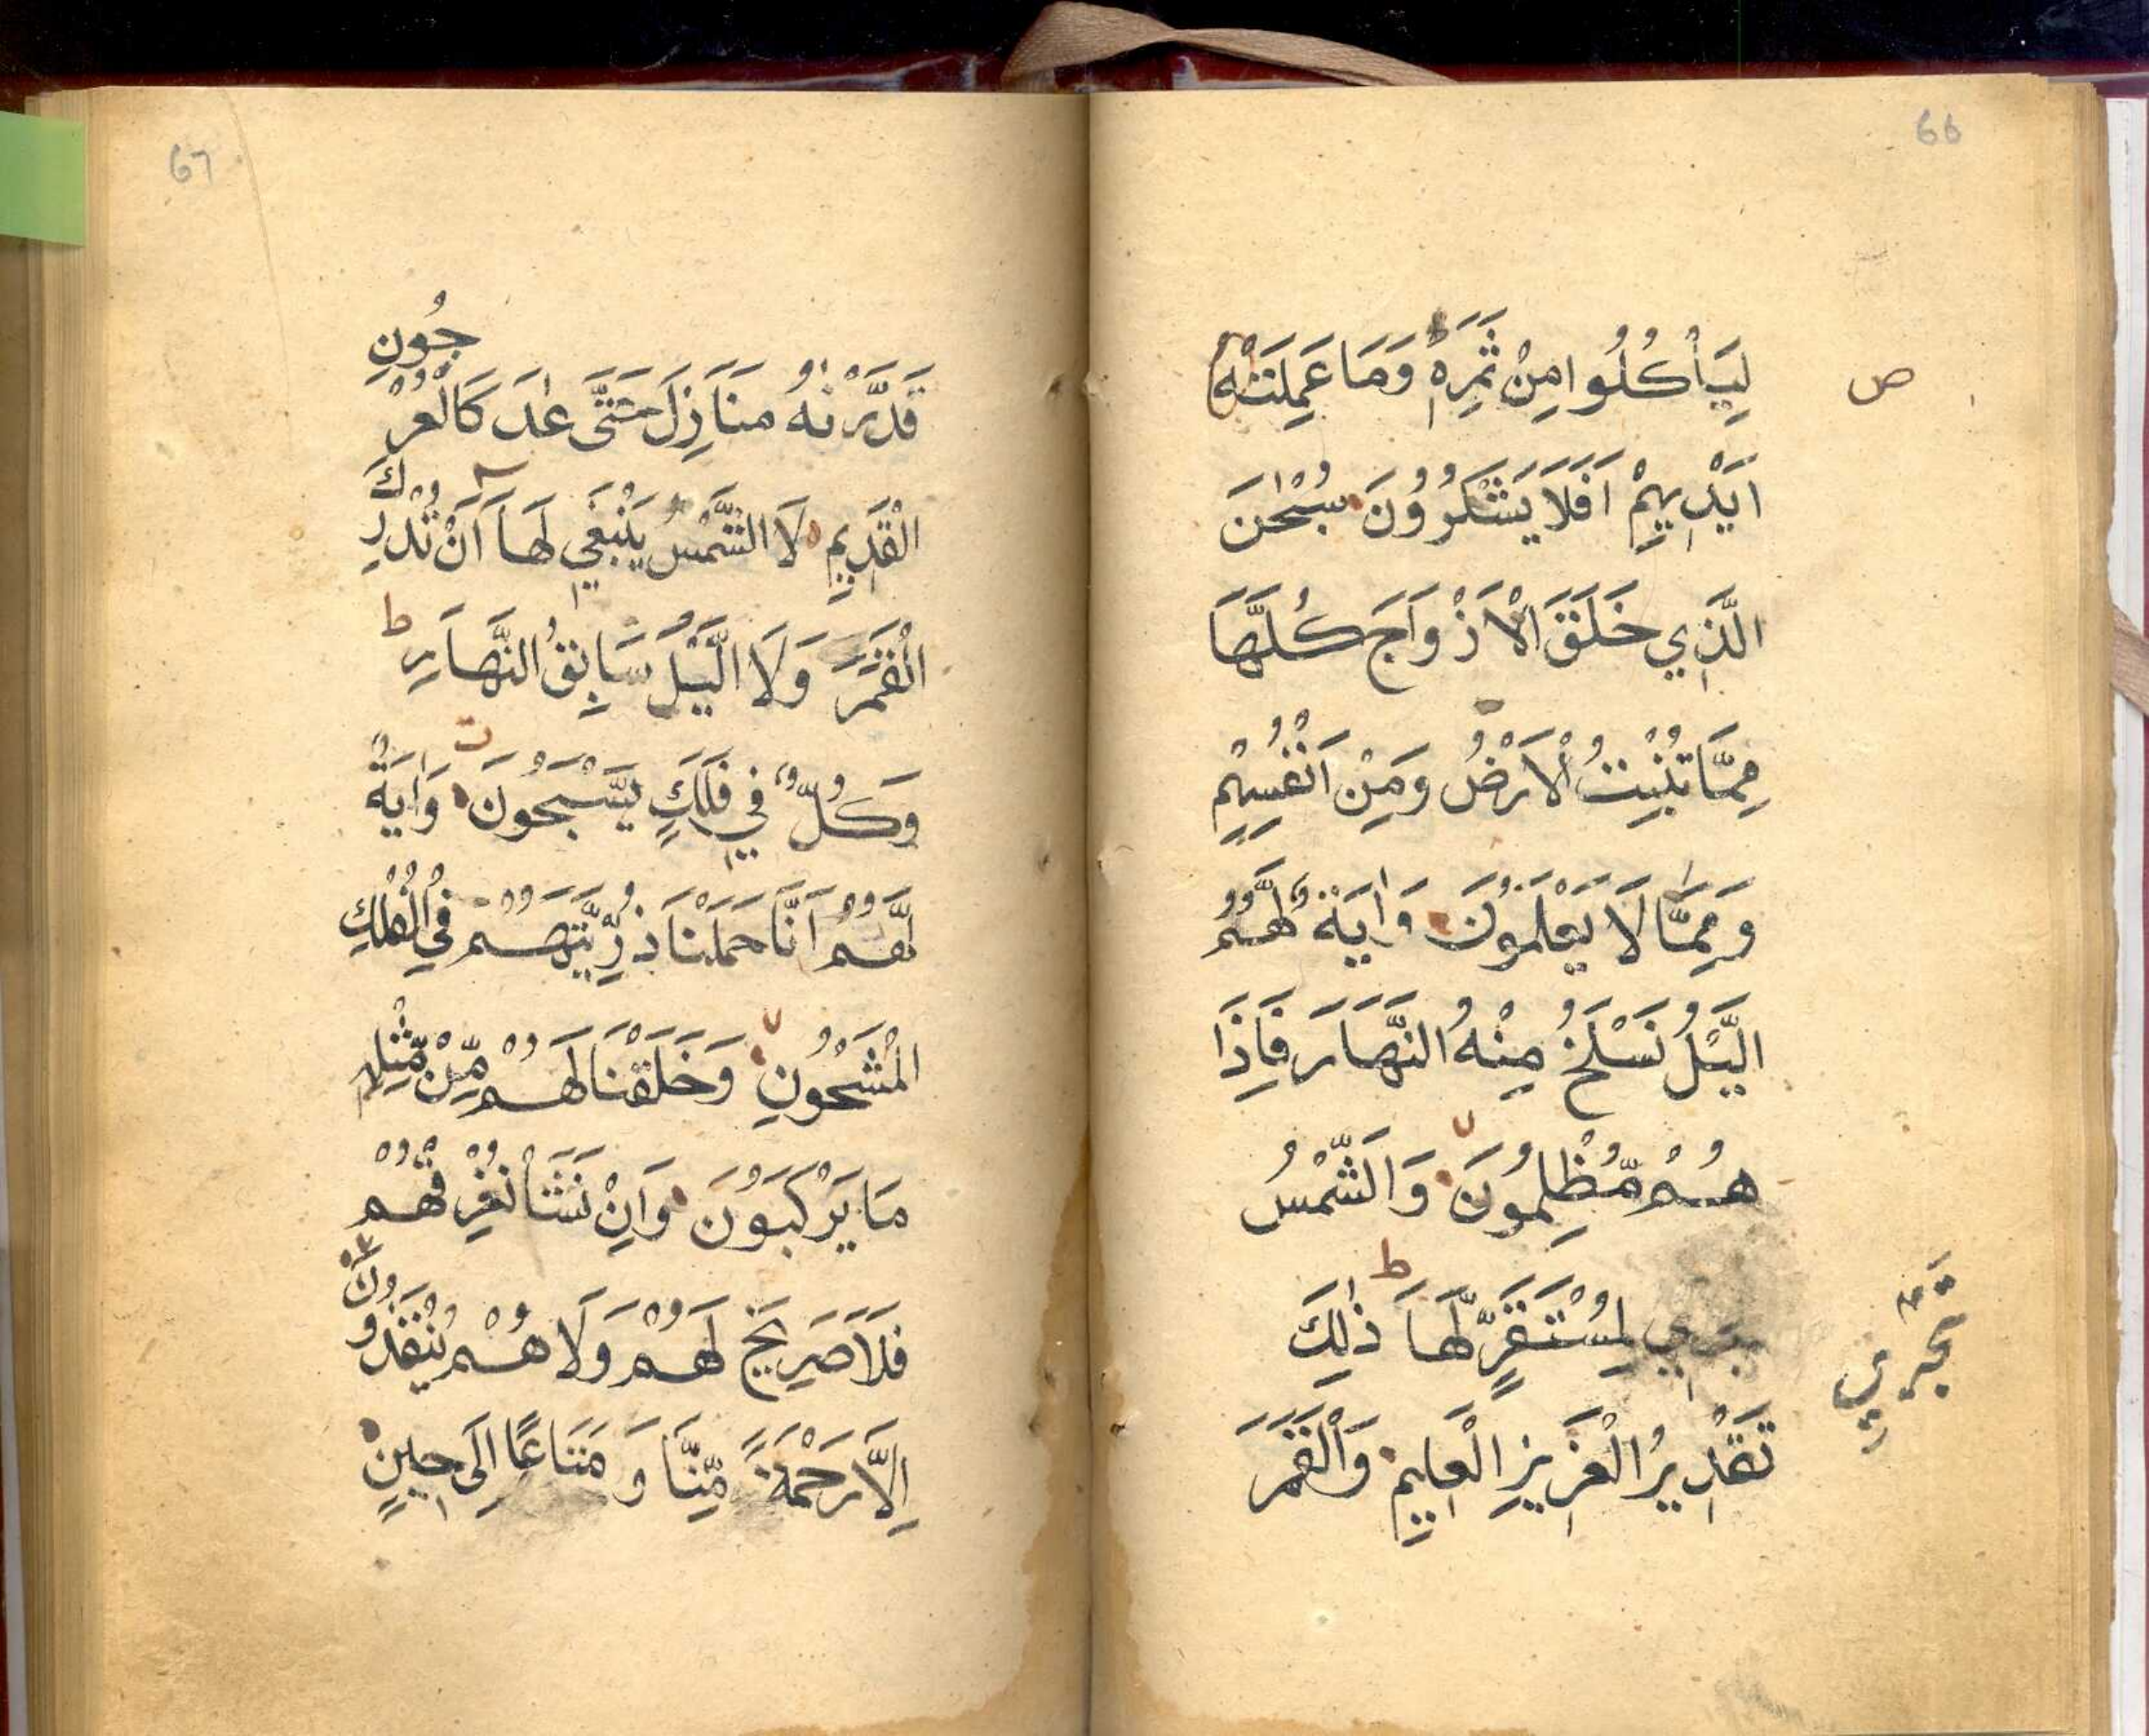 66
ص
لِيَأْكُلُوا مِنْ ثَمَرِهٖ وَمَا عَمِلَتْهُ
اَيْدِيهِمْ اَفَلَا يَشْكُرُوْنَ سُبْحٰنَ
الَّذِي خَلَقَ الْاَزْوَاجَ كُلَّهَا
مِمَّا تُنْبِتُ الْاَرْضُ وَمِنْ اَنْفُسِهِمْ
وَمِمَّا لَا يَعْلَمُوْنَ وَاٰيَةٌ لَّهُمُ
الَّيْلُ نَسْلَخُ مِنْهُ النَّهَارَ فَاِذَا
هُمْ مُّظْلِمُوْنَ وَالشَّمْسُ
تَجْرِي لِمُسْتَقَرٍّ لَّهَا ط ذٰلِكَ
تَجْرِي
تَقْدِيرُ الْعَزِيزِ الْعَلِيمِ وَالْقَمَرَ
67
قَدَّرْنٰهُ مَنَازِلَ حَتَّى عَادَ كَالْعُرْجُونِ
الْقَدِيمِ لَا الشَّمْسُ يَنْبَغِي لَهَا اَنْ تُدْرِكَ
الْقَمَرَ وَلَا الَّيْلُ سَابِقُ النَّهَارِ ط
وَكُلٌّ فِي فَلَكٍ يَّسْبَحُوْنَ وَاٰيَةٌ
لَّهُمْ اَنَّا حَمَلْنَا ذُرِّيَّتَهُمْ فِي الْفُلْكِ
الْمَشْحُوْنِ وَخَلَقْنَا لَهُمْ مِّنْ مِّثْلِهِ
مَا يَرْكَبُوْنَ وَاِنْ نَشَاْ نُغْرِقْهُمْ
فَلَا صَرِيخَ لَهُمْ وَلَا هُمْ يُنْقَذُوْنَ
اِلَّا رَحْمَةً مِّنَّا وَمَتَاعًا اِلَى حِينٍ